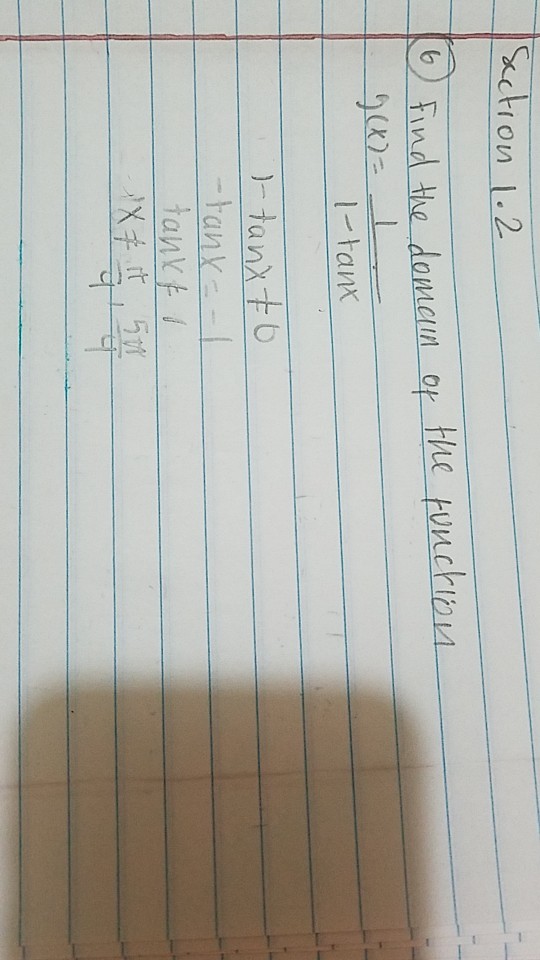 Section 1.2
6 Find the domain of the function
g(x) = 1
1-tanx
1-tanx ≠ 0
-tanx = -1
tanx ≠ 1
x ≠ π/4, 5π/4